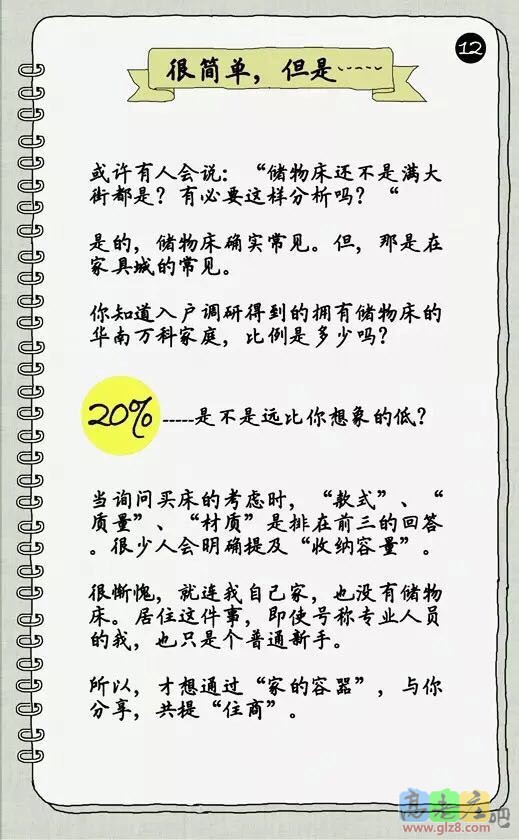 12
很简单，但是……
或许有人会说：“储物床还不是满大
街都是？有必要这样分析吗？“
是的，储物床确实常见。但，那是在
家具城的常见。
你知道入户调研得到的拥有储物床的
华南万科家庭，比例是多少吗？
20% -----是不是远比你想象的低？
当询问买床的考虑时，“款式”、“
质量”、“材质”是排在前三的回答
。很少人会明确提及“收纳容量”。
很惭愧，就连我自己家，也没有储物
床。居住这件事，即使号称专业人员
的我，也只是个普通新手。
所以，才想通过“家的容器”，与你
分享，共提“住商”。
高老庄吧
www.glz8.com